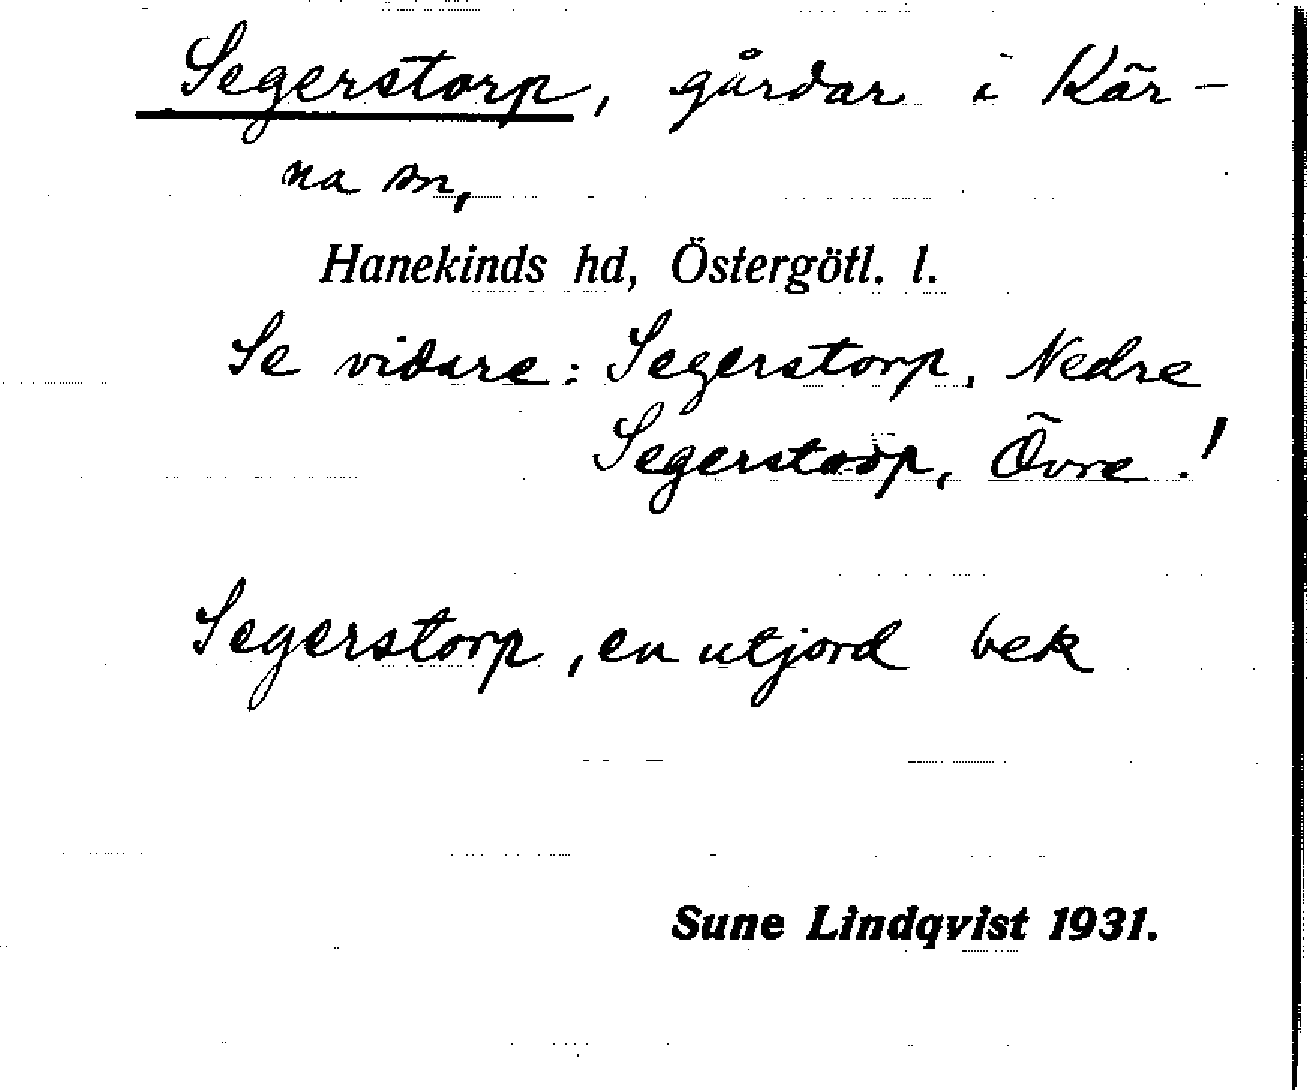 Segerstorp, gårdar i Kär-
na sn,
Hanekinds hd, Östergötl. l.
Se vidare: Segerstorp, Nedre
Segerstorp, Övre!
Segerstorp, en utjord bek
Sune Lindqvist 1931.